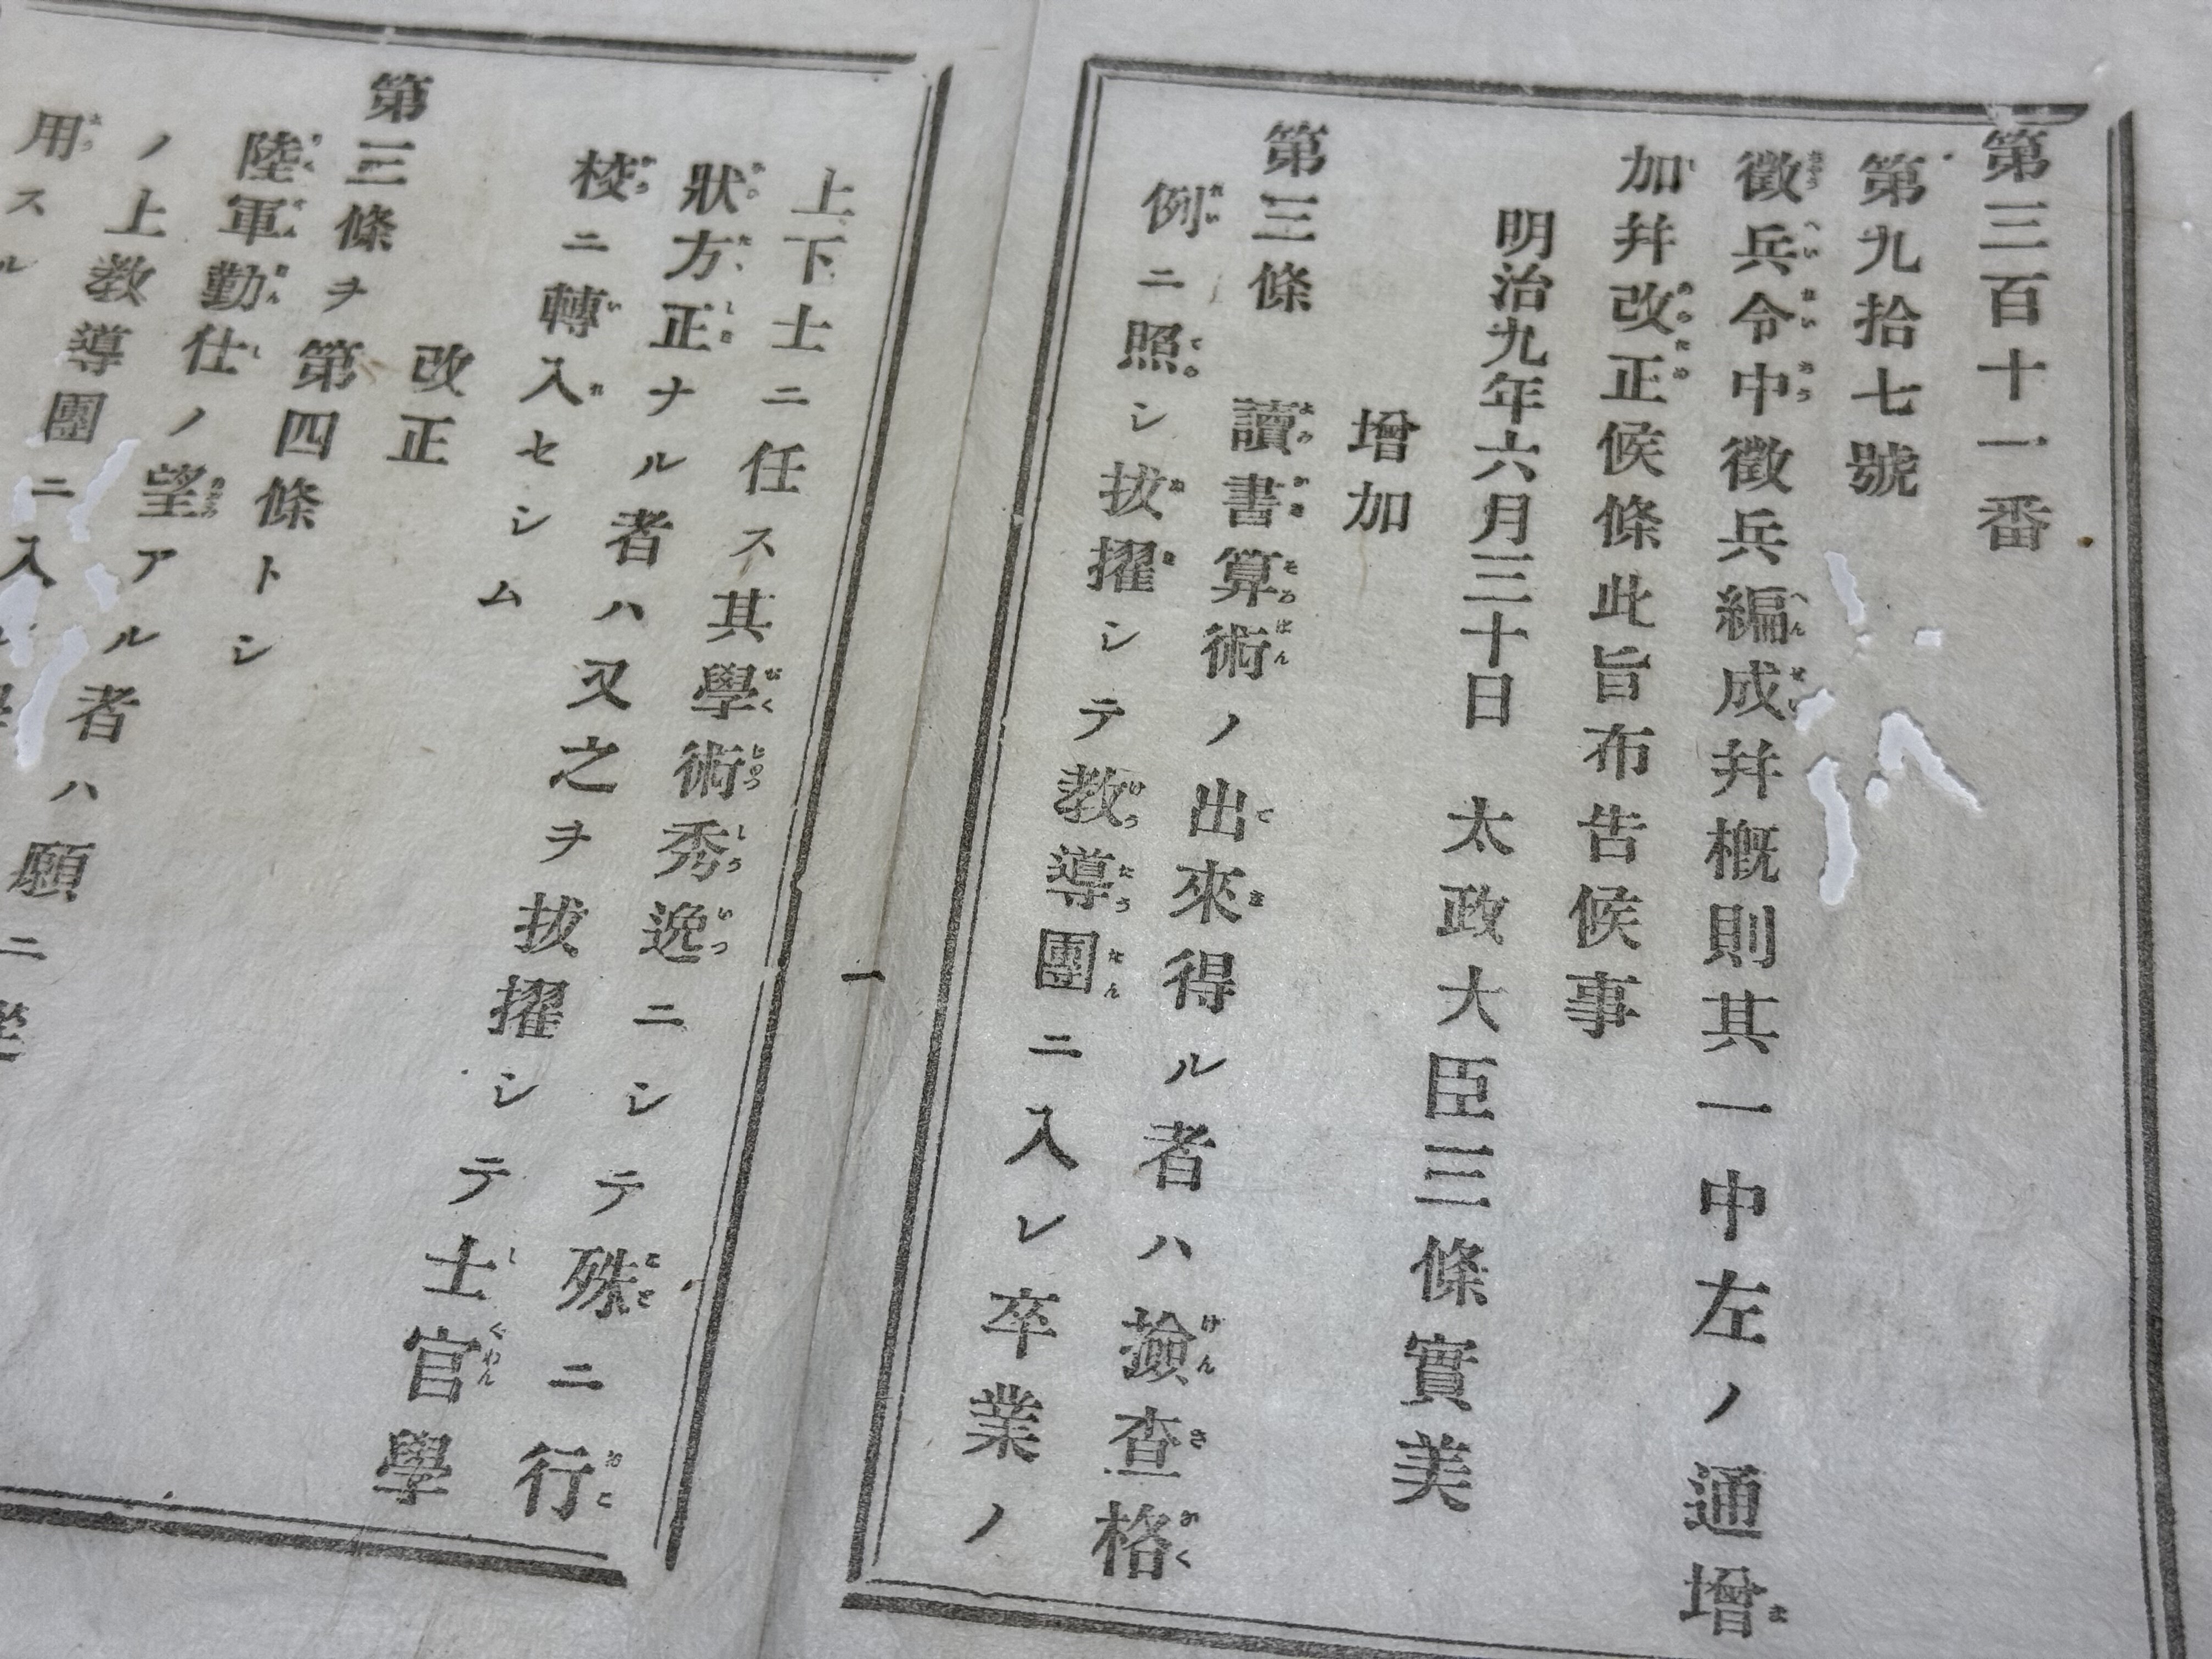 第三百十一番
第九拾七號
徵兵令中徵兵編成幷概則其一中左ノ通增
加幷改正候條此旨布告候事
明治九年六月三十日　太政大臣三條實美
增加
第三條　讀書算術ノ出來得ル者ハ撿查格
例ニ照シ拔擢シテ教導團ニ入レ卒業ノ
一
上下士ニ任ス其學術秀逸ニシテ殊ニ行
狀方正ナル者ハ又之ヲ拔擢シテ士官學
校ニ轉入セシム
改正
第三條ヲ第四條トシ
陸軍勤仕ノ望アル者ハ願ニ
ノ上教導團ニ入
用スル